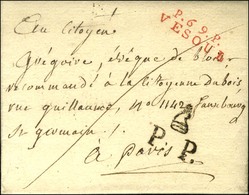 P.69.P.
VESOUL
Au Citoyen
Grégoire, évêque de blois
recommandé à la Citoyenne dubois
rue guillaume, n° 1142 fauxbourg
st germain
P. P.
à paris